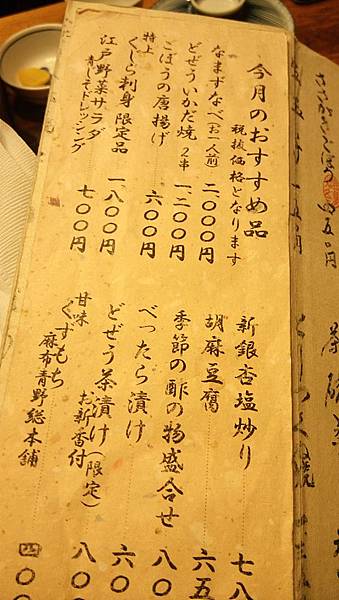 今月のおすすめ品
税抜価格となります
なまずなべ(お一人前) 二〇〇〇円
どぜういかだ焼 2串 一、二〇〇円
ごぼうの唐揚げ 六〇〇円
特上
くじら刺身 限定品 一、八〇〇円
江戸野菜サラダ 七〇〇円
青じそドレッシング
新銀杏塩炒り 七八
胡麻豆腐 六五
季節の酢の物盛合せ 八〇
べったら漬け 六〇
どぜう茶漬け(限定) 八〇
お新香付
甘味
くずもち 四〇〇
麻布青野総本舗
五〇円